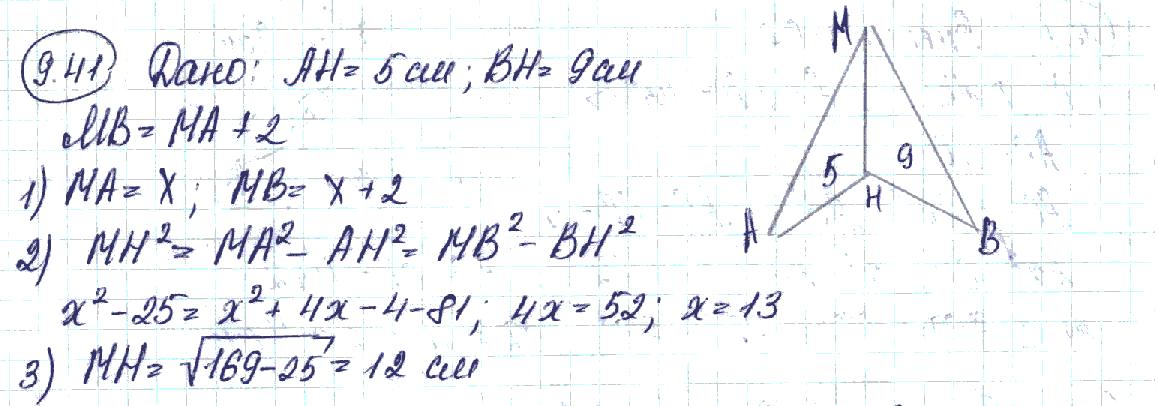 9.41 Дано: AH = 5 см; BH = 9 см
MB = MA + 2
1) MA = X; MB = X + 2
2) MH² = MA² - AH² = MB² - BH²
x² - 25 = x² + 4x - 4 - 81; 4x = 52; x = 13
3) MH = √169-25 = 12 см
M
5
9
H
A
B